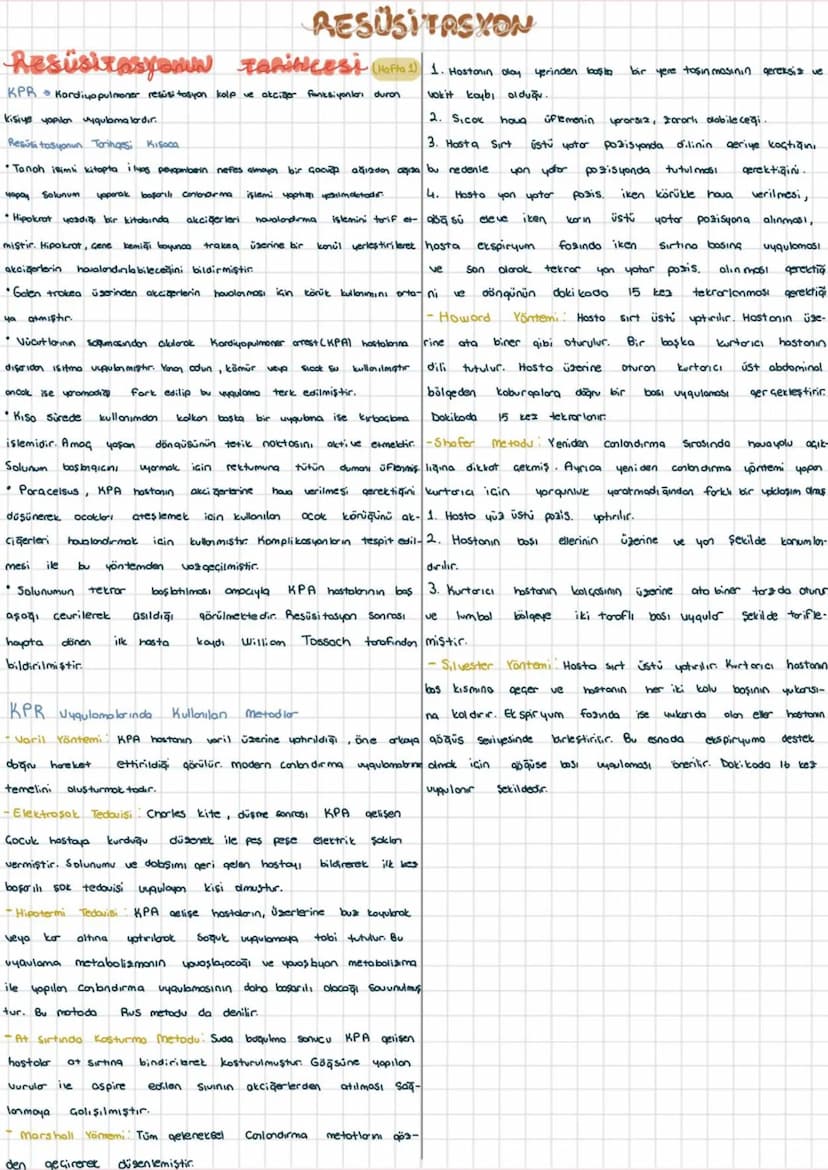 RESÜSİTASYON
RESÜSİTASYONUN TARİHÇESİ (Hafta 1)
KPR → Kardiyopulmoner resüsitasyon kalp ve akciğer fonksiyonları duran
kişiye yapılan uygulamalardır.
Resüsitasyonun Tarihçesi Kısaca
• Tanah isimli kitapta ilyas peygamberin nefes almayan bir çocuğa ağızdan ağıza
yapay solunum yaparak başarılı canlandırma işlemi yaptığı yazılmaktadır.
• Hipokrat yazdığı bir kitabında akciğerleri havalandırma işlemini tarif et-
miştir. Hipokrat, çene kemiği boyunca trakea üzerine bir kanül yerleştirilerek
akciğerlerin havalandırılabileceğini bildirmiştir.
• Galen trakea üzerinden akciğerlerin havalanması için körük kullanımını orta-
ya atmıştır.
• Vücutlarının soğumasından dolayı Kardiyopulmoner arrest (KPA) hastalarına
dışarıdan ısıtma uygulanmıştır. Yanan odun, kömür veya sıcak su kullanılmıştır
ancak işe yaramadığı fark edilip bu uygulama terk edilmiştir.
• Kısa sürede kullanımdan kalkan başka bir uygulama ise kırbaçlama
işlemidir. Amaç yaşam döngüsünün tetik noktasını aktive etmektir.
Solunum başlangıcını uyarmak için rektumuna tütün dumanı üflenmiş
• Paracelsus, KPA hastanın akciğerlerine hava verilmesi gerektiğini
düşünerek ocakları ateşlemek için kullanılan ocak körüğünü ak-
ciğerleri havalandırmak için kullanmıştır. Komplikasyonların tespit edil-
mesi ile bu yöntemden vazgeçilmiştir.
• Solunumun tekrar başlatılması amacıyla KPA hastalarının baş
aşağı çevrilerek asıldığı görülmektedir. Resüsitasyon sonrası
hayata dönen ilk hasta kaydı William Tossach tarafından
bildirilmiştir.
KPR Uygulamalarında Kullanılan Metodlar
- Varil Yöntemi: KPA hastanın varil üzerine yatırıldığı, öne arkaya
doğru hareket ettirildiği görülür. modern canlandırma uygulamalarının
temelini oluşturmaktadır.
- Elektroşok Tedavisi: Charles kite, düşme sonrası KPA gelişen
çocuk hastaya kurduğu düzenek ile peş peşe elektrik şokları
vermiştir. Solunumu ve dolaşımı geri gelen hastayı bildirerek ilk kez
başarılı şok tedavisi uygulayan kişi olmuştur.
- Hipotermi Tedavisi: KPA gelişe hastaların, üzerlerine buz koyularak
veya kar altına yatırılarak soğuk uygulamaya tabi tutulur. Bu
uygulama metabolizmanın yavaşlayacağı ve yavaşlayan metabolizma
ile yapılan canlandırma uygulamasının daha başarılı olacağı savunulmuş
tur. Bu metoda Rus metodu da denilir.
- At Sırtında Kosturma Metodu: Suda boğulma sonucu KPA gelişen
hastalar at sırtına bindirilerek kosturulmuştur. Göğsüne yapılan
vurular ile aspire edilen sıvının akciğerlerden atılması sağ-
lanmaya çalışılmıştır.
- Marshall Yöntemi: Tüm geleneksel canlandırma metotlarını göz-
den geçirerek düzenlemiştir.
1. Hastanın olay yerinden başka bir yere taşınmasının gereksiz ve
vakit kaybı olduğu.
2. Sıcak hava üflemenin yararsız, zararlı olabileceği.
3. Hasta sırt üstü yatar pozisyonda dilinin geriye kaçtığını
bu nedenle yan yatar pozisyonda tutulması gerektiğini.
4. Hasta yan yatar pozis. iken körükle hava verilmesi,
göğsü eleve iken karın üstü yatar pozisyona alınması,
hasta ekspiryum fazında iken sırtına basınç uygulaması
ve son olarak tekrar yan yatar pozis. alınması gerektiği
ni ve döngünün dakikada 15 kez tekrarlanması gerektiği
- Howard Yöntemi: Hasta sırt üstü yatırılır. Hastanın üze-
rine ata biner gibi oturulur. Bir başka kurtarıcı hastanın
dili tutulur. Hasta üzerine oturan kurtarıcı üst abdominal
bölgeden kaburgalara doğru bir bası uygulaması gerçekleştirir.
Dakikada 15 kez tekrarlanır.
- Shafer Metodu: Yeniden canlandırma sırasında havayolu açık-
lığına dikkat çekmiş. Ayrıca yeniden canlandırma yöntemi yapan
kurtarıcı için yorgunluk yaratmadığından farklı bir yaklaşım olmuş
1. Hasta yüz üstü pozis. yatırılır.
2. Hastanın başı ellerinin üzerine ve yan şekilde konumlan-
dırılır.
3. Kurtarıcı hastanın kalçasının üzerine ata biner tarzda oturur
ve lumbal bölgeye iki taraflı bası uygular şekilde tarifle-
miştir.
- Silvester Yöntemi: Hasta sırt üstü yatırılır. Kurtarıcı hastanın
baş kısmına geçer ve hastanın her iki kolu başının yukarısı-
na kaldırır. Ekspiryum fazında ise yukarıda olan eller hastanın
göğüs seviyesinde birleştirilir. Bu esnada ekspiryuma destek
olmak için göğüse bası uygulaması önerilir. Dakikada 16 kez
uygulanır şekildedir.